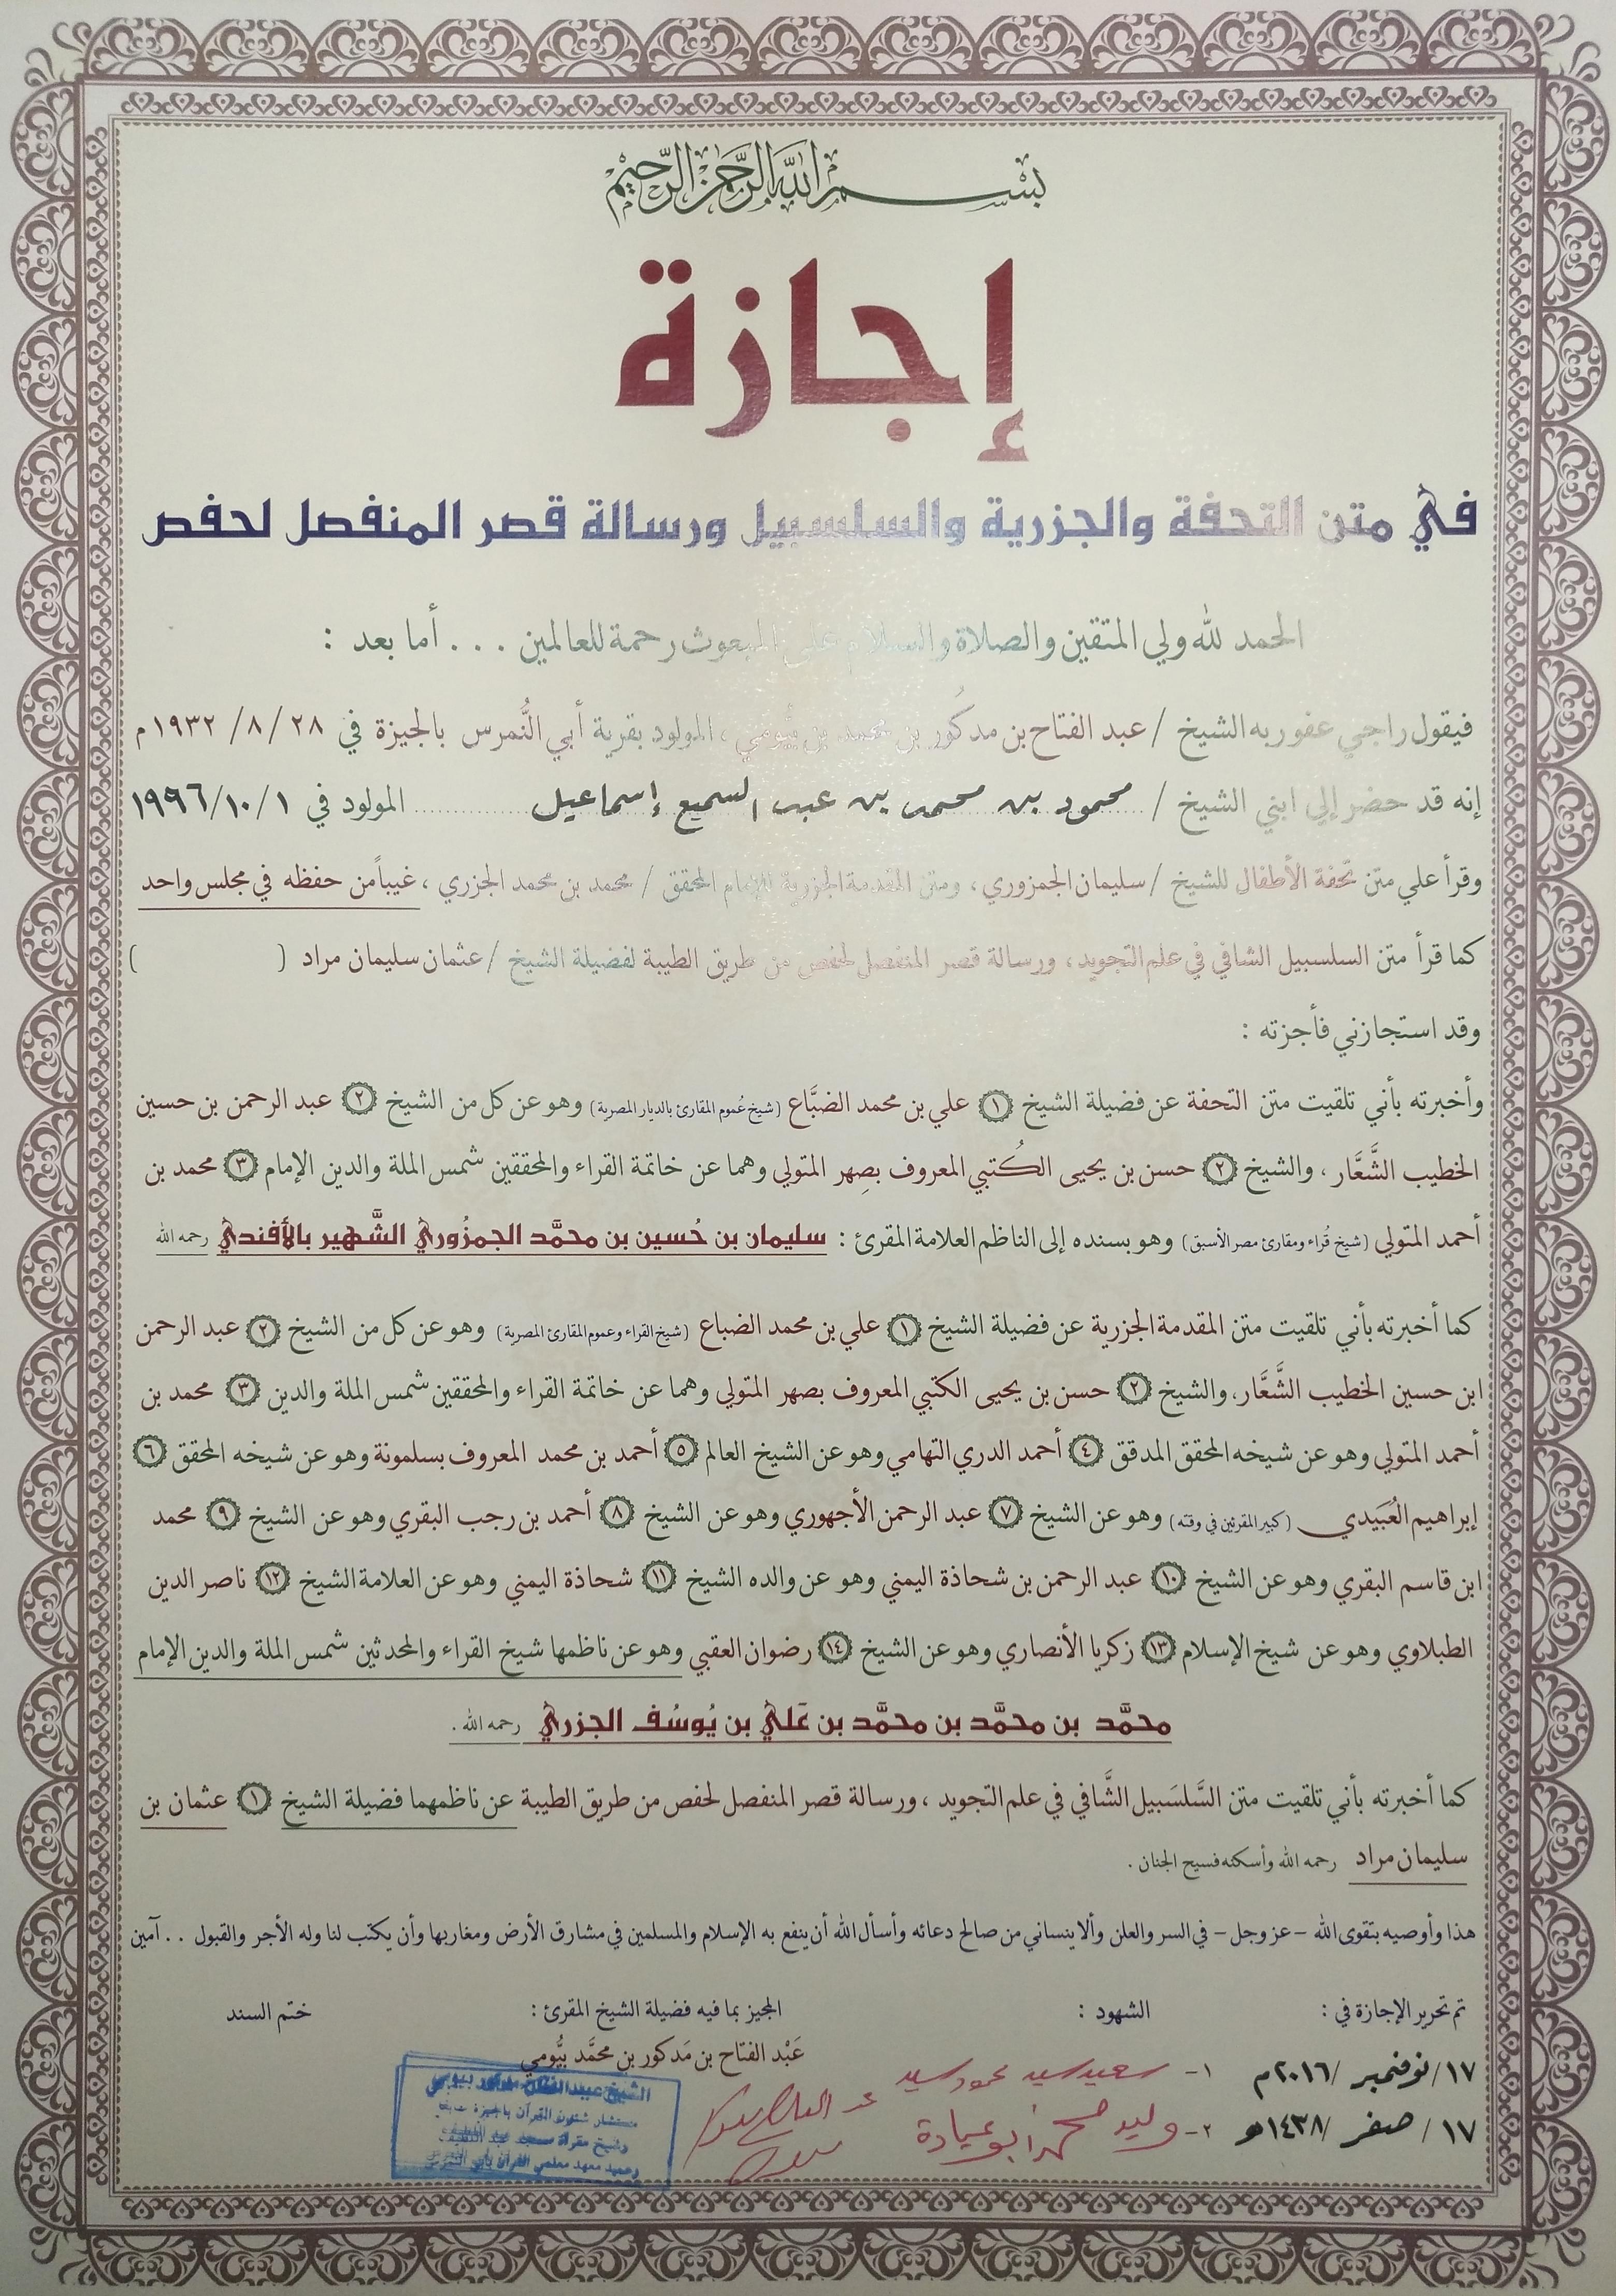 بسم الله الرحمن الرحيم
إجازة
في متن التحفة والجزرية والسلسبيل ورسالة قصر المنفصل لحفص
الحمد لله ولي المتقين والصلاة والسلام على المبعوث رحمة للعالمين . . . أما بعد :
فيقول راجي عفو ربه الشيخ / عبد الفتاح بن مدكُور بن محمد بن بيُّومي ، المولود بقرية أبي النُّمرس بالجيزة في ٢٨ / ٨ / ١٩٣٢م
إنه قد حضر إلي ابني الشيخ / محمود بن محمد بن عبد السميع إسماعيل المولود في ١ / ١٠ / ١٩٩٦
وقرأ علي متن تحفة الأطفال للشيخ / سليمان الجمزوري ، ومتن المقدمة الجزرية للإمام المحقق / محمد بن محمد الجزري ، غيباً من حفظه في مجلس واحد
كما قرأ متن السلسبيل الشافي في علم التجويد ، ورسالة قصر المنفصل لحفص من طريق الطيبة لفضيلة الشيخ / عثمان سليمان مراد ( )
وقد استجازني فأجزته :
وأخبرته بأني تلقيت متن التحفة عن فضيلة الشيخ ١ علي بن محمد الضبَّاع (شيخ عُموم المقارئ بالديار المصرية) وهو عن كل من الشيخ ٢ عبد الرحمن بن حسين
الخطيب الشَّعَّار ، والشيخ ٢ حسن بن يحيى الكُتبي المعروف بصِهر المتولي وهما عن خاتمة القراء والمحققين شمس الملة والدين الإمام ٣ محمد بن
أحمد المتولي (شيخ قُراء ومقارئ مصر الأسبق) وهو بسنده إلى الناظم العلامة المقرئ : سليمان بن حُسين بن محمَّد الجمزُوري الشَّهير بالأفندي رحمه الله
كما أخبرته بأني تلقيت متن المقدمة الجزرية عن فضيلة الشيخ ١ علي بن محمد الضباع (شيخ القراء وعموم المقارئ المصرية) وهو عن كل من الشيخ ٢ عبد الرحمن
ابن حسين الخطيب الشَّعَّار، والشيخ ٢ حسن بن يحيى الكتبي المعروف بصهر المتولي وهما عن خاتمة القراء والمحققين شمس الملة والدين ٣ محمد بن
أحمد المتولي وهو عن شيخه المحقق المدقق ٤ أحمد الدري التهامي وهو عن الشيخ العالم ٥ أحمد بن محمد المعروف بسلمونة وهو عن شيخه المحقق ٦
إبراهيم العُبَيدي (كبير المقرئين في وقته) وهو عن الشيخ ٧ عبد الرحمن الأجهوري وهو عن الشيخ ٨ أحمد بن رجب البقري وهو عن الشيخ ٩ محمد
ابن قاسم البقري وهو عن الشيخ ١٠ عبد الرحمن بن شحاذة اليمني وهو عن والده الشيخ ١١ شحاذة اليمني وهو عن العلامة الشيخ ١٢ ناصر الدين
الطبلاوي وهو عن شيخ الإسلام ١٣ زكريا الأنصاري وهو عن الشيخ ١٤ رضوان العقبي وهو عن ناظمها شيخ القراء والمحدثين شمس الملة والدين الإمام
محمَّد بن محمَّد بن محمَّد بن عَلي بن يُوسُف الجزري رحمه الله .
كما أخبرته بأني تلقيت متن السَّلسَبيل الشَّافي في علم التجويد ، ورسالة قصر المنفصل لحفص من طريق الطيبة عن ناظمهما فضيلة الشيخ ١ عثمان بن
سليمان مراد رحمه الله وأسكنه فسيح الجنان .
هذا وأوصيه بتقوى الله – عز وجل – في السر والعلن وألا ينساني من صالح دعائه وأسأل الله أن ينفع به الإسلام والمسلمين في مشارق الأرض ومغاربها وأن يكتب لنا وله الأجر والقبول . . آمين
تم تحرير الإجازة في : الشهود : المجيز بما فيه فضيلة الشيخ المقرئ : ختم السند
عَبْد الفتَاح بن مَدكور بن محمَّد بيُّومي
١٧ / نوفمبر / ٢٠١٦م ١- سعيد سيد محمود سيد
١٧ / صفر / ١٤٣٨هـ ٢- وليد محمد أبو عيادة
الشيخ عبد الفتاح مدكور بيومي
مستشار شئون القرآن بالجيزة
وشيخ مقرأة مسجد عبد اللطيف
وعميد معهد معلمي القرآن بأبي النمرس